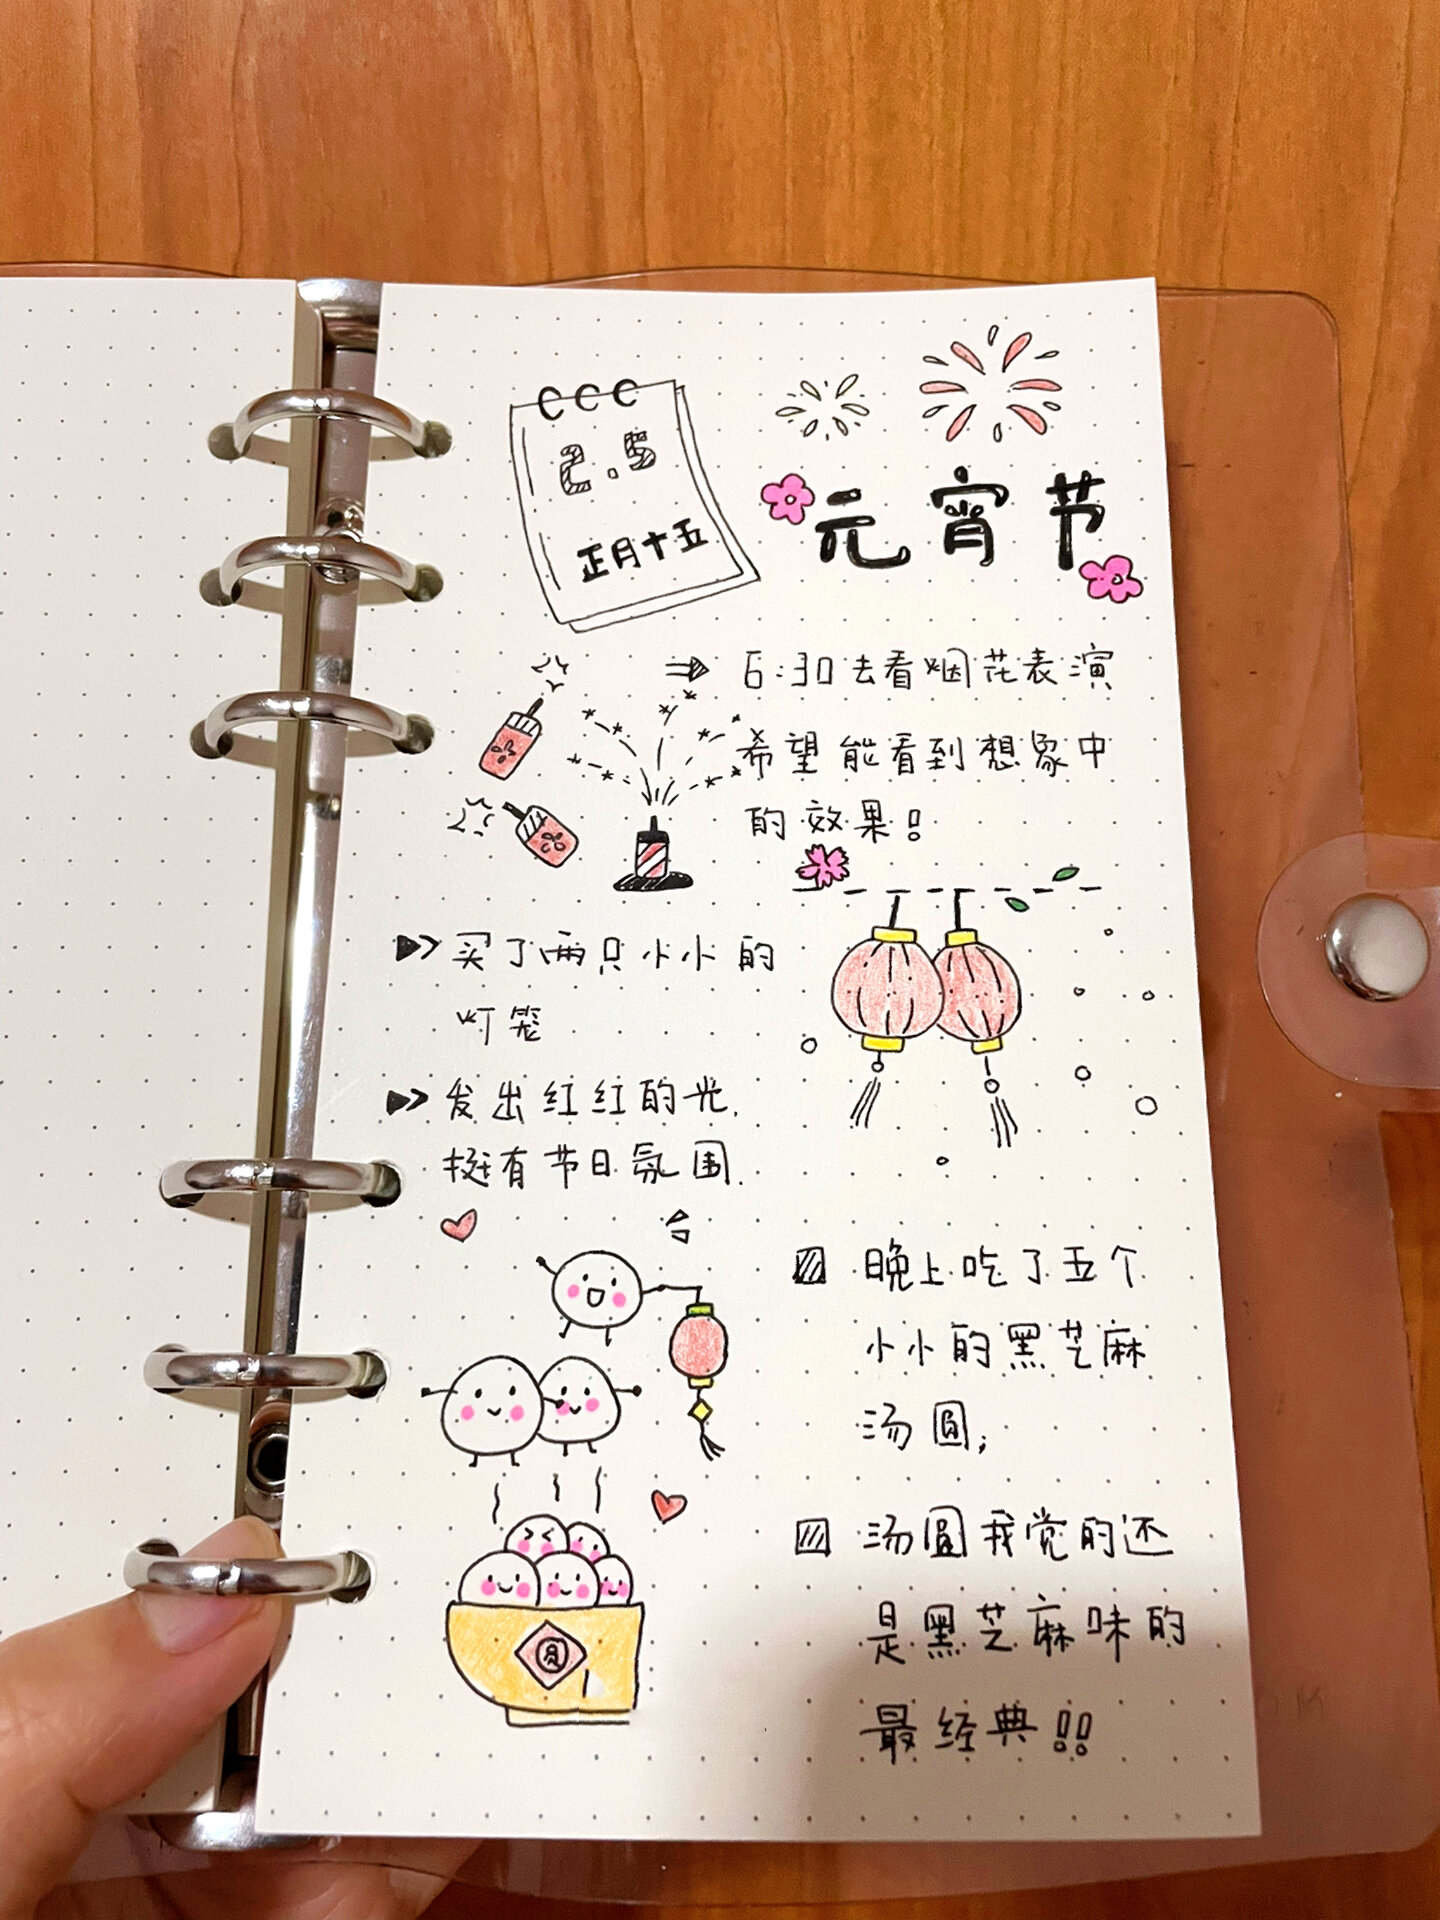 2.5
正月十五
元宵节
6:30去看烟花表演
希望能看到想象中
的效果!
买了两只小小的
灯笼
发出红红的光.
挺有节日氛围.
晚上吃了五个
小小的黑芝麻
汤圆;
汤圆我觉的还
是黑芝麻味的
最经典!!
圆